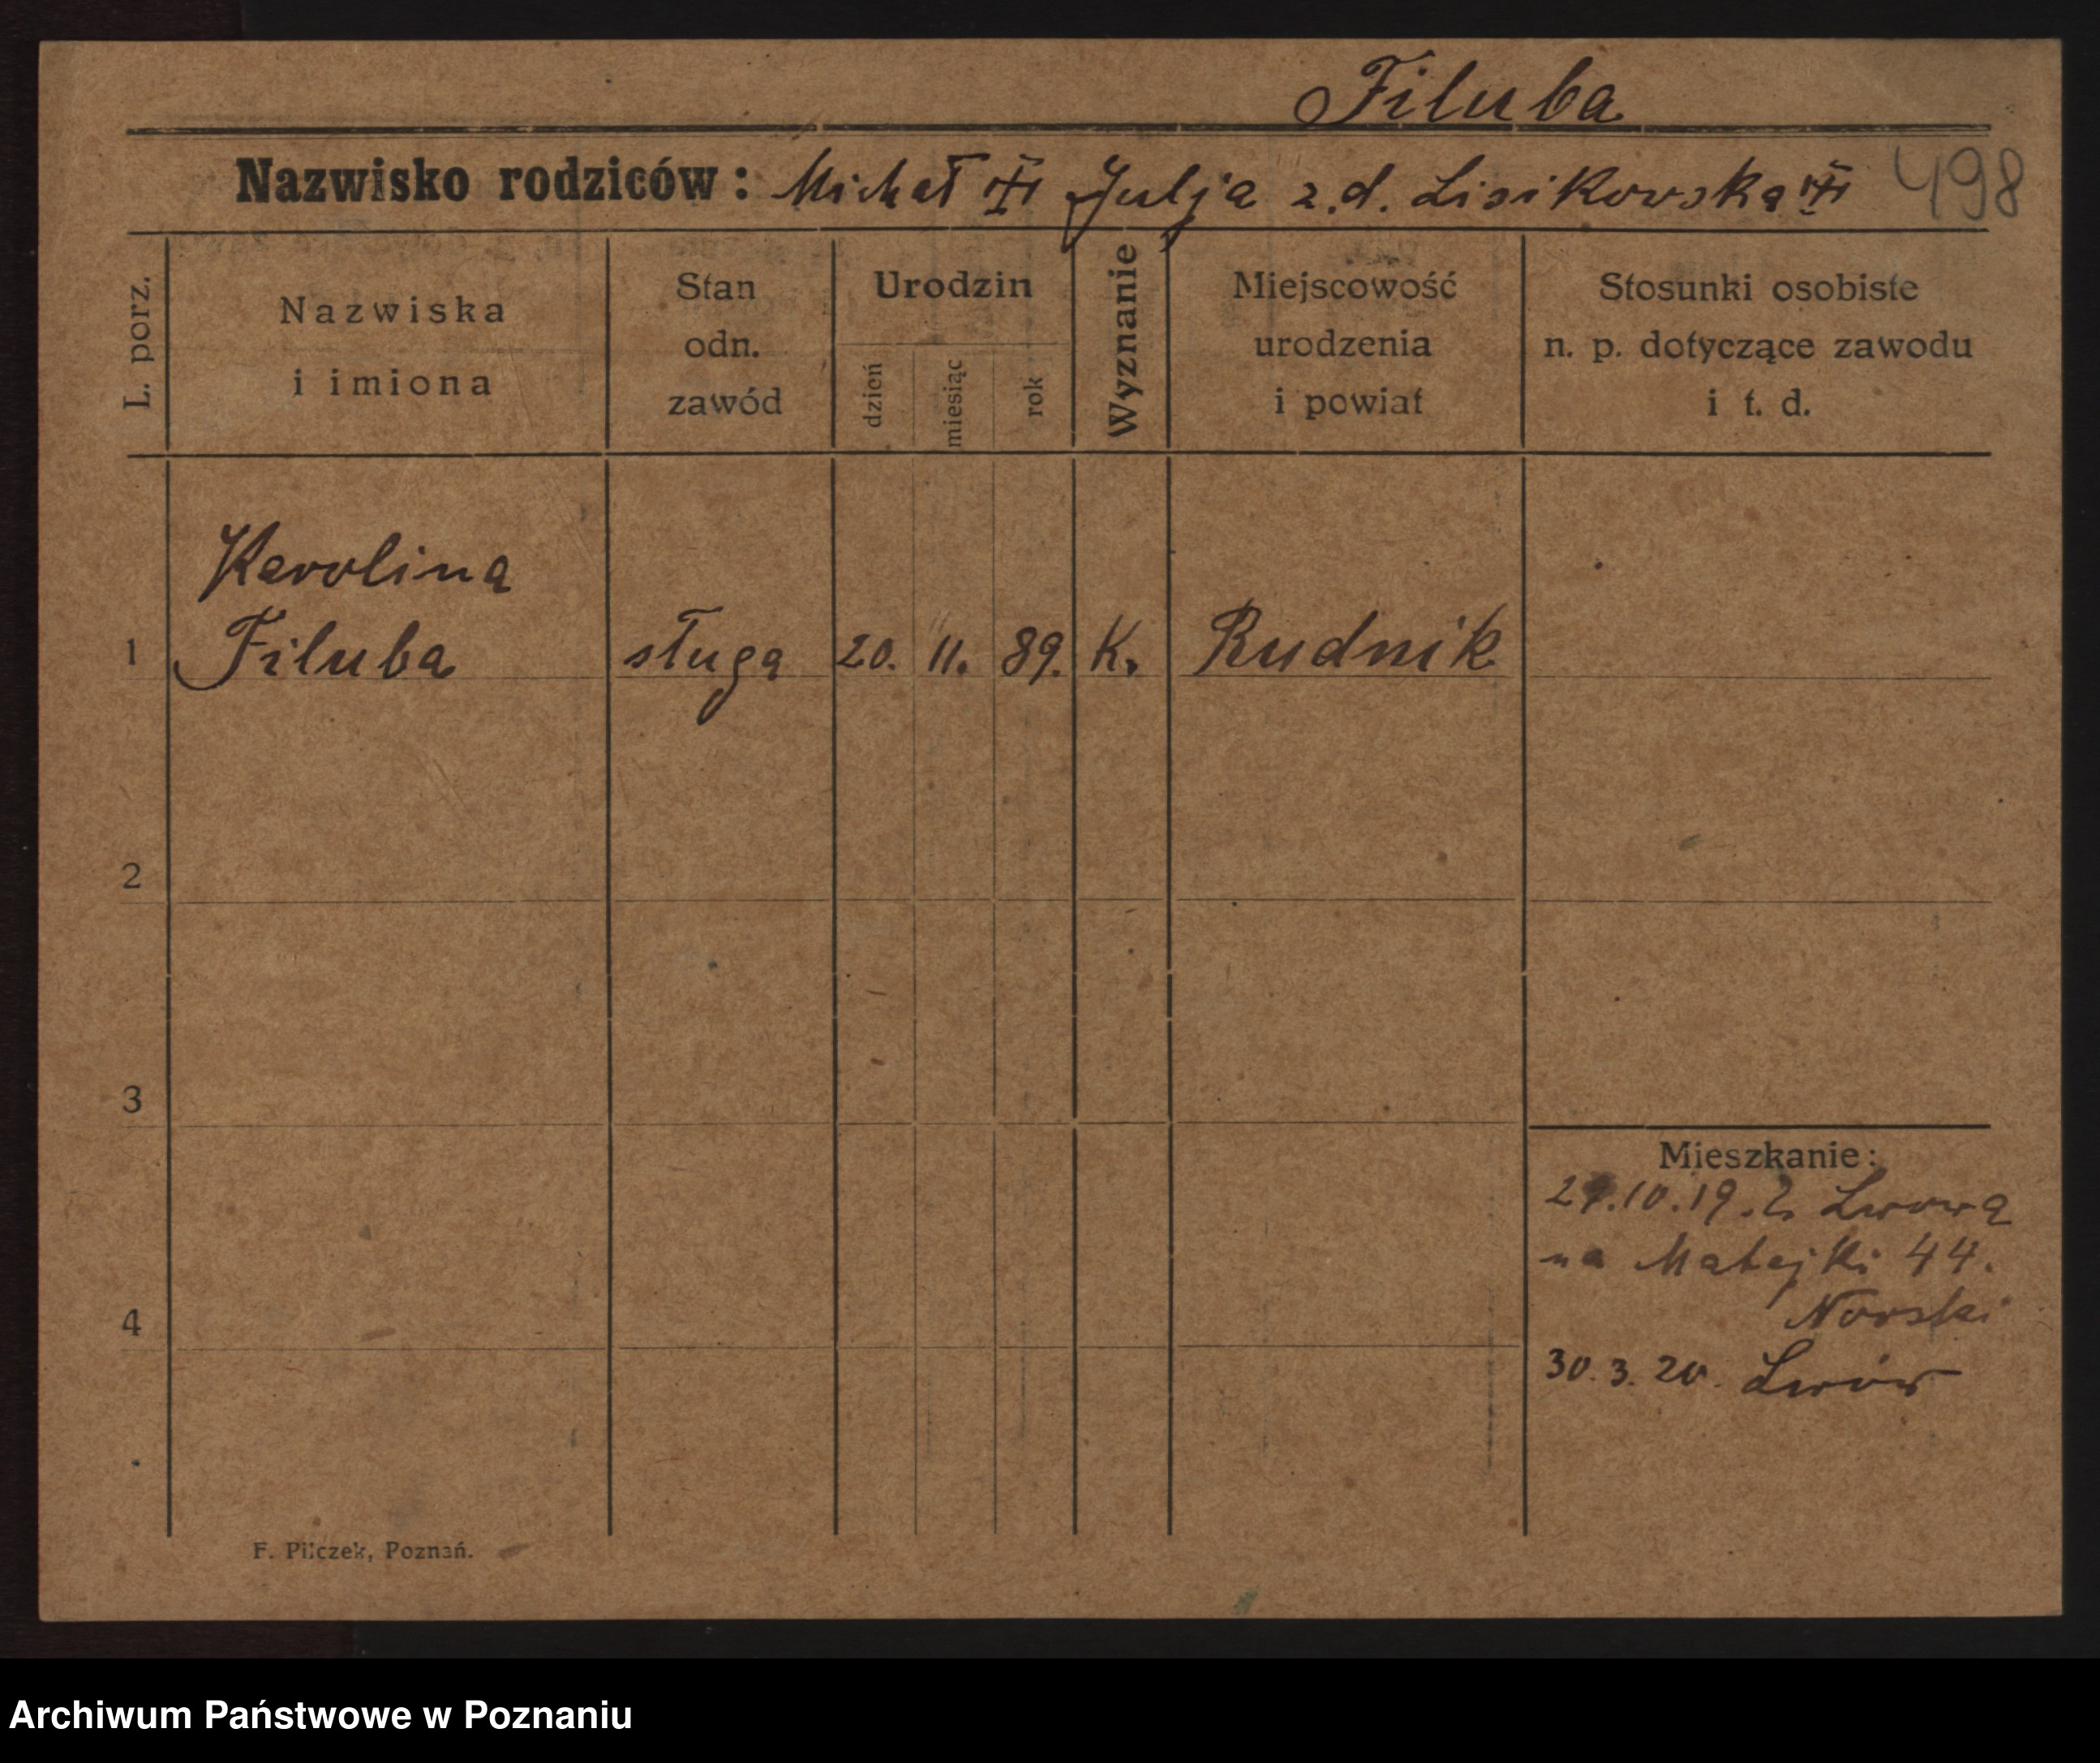 Filuba
Nazwisko rodziców: Michał Julja z.d. Lisikowska 498
L. porz.
Nazwiska
i imiona
Stan
odn.
zawód
Urodzin
dzień
miesiąc
rok
Wyznanie
Miejscowość
urodzenia
i powiat
Stosunki osobiste
n. p. dotyczące zawodu
i t. d.
Karolina
1 Filuba sługa 20. 11. 89. K. Rudnik
2
3
4
Mieszkanie:
.10.19. z Lwowa
na Matejki 44.
Norski
30.3.20. Lwów
F. Pilczek, Poznań.
Archiwum Państwowe w Poznaniu